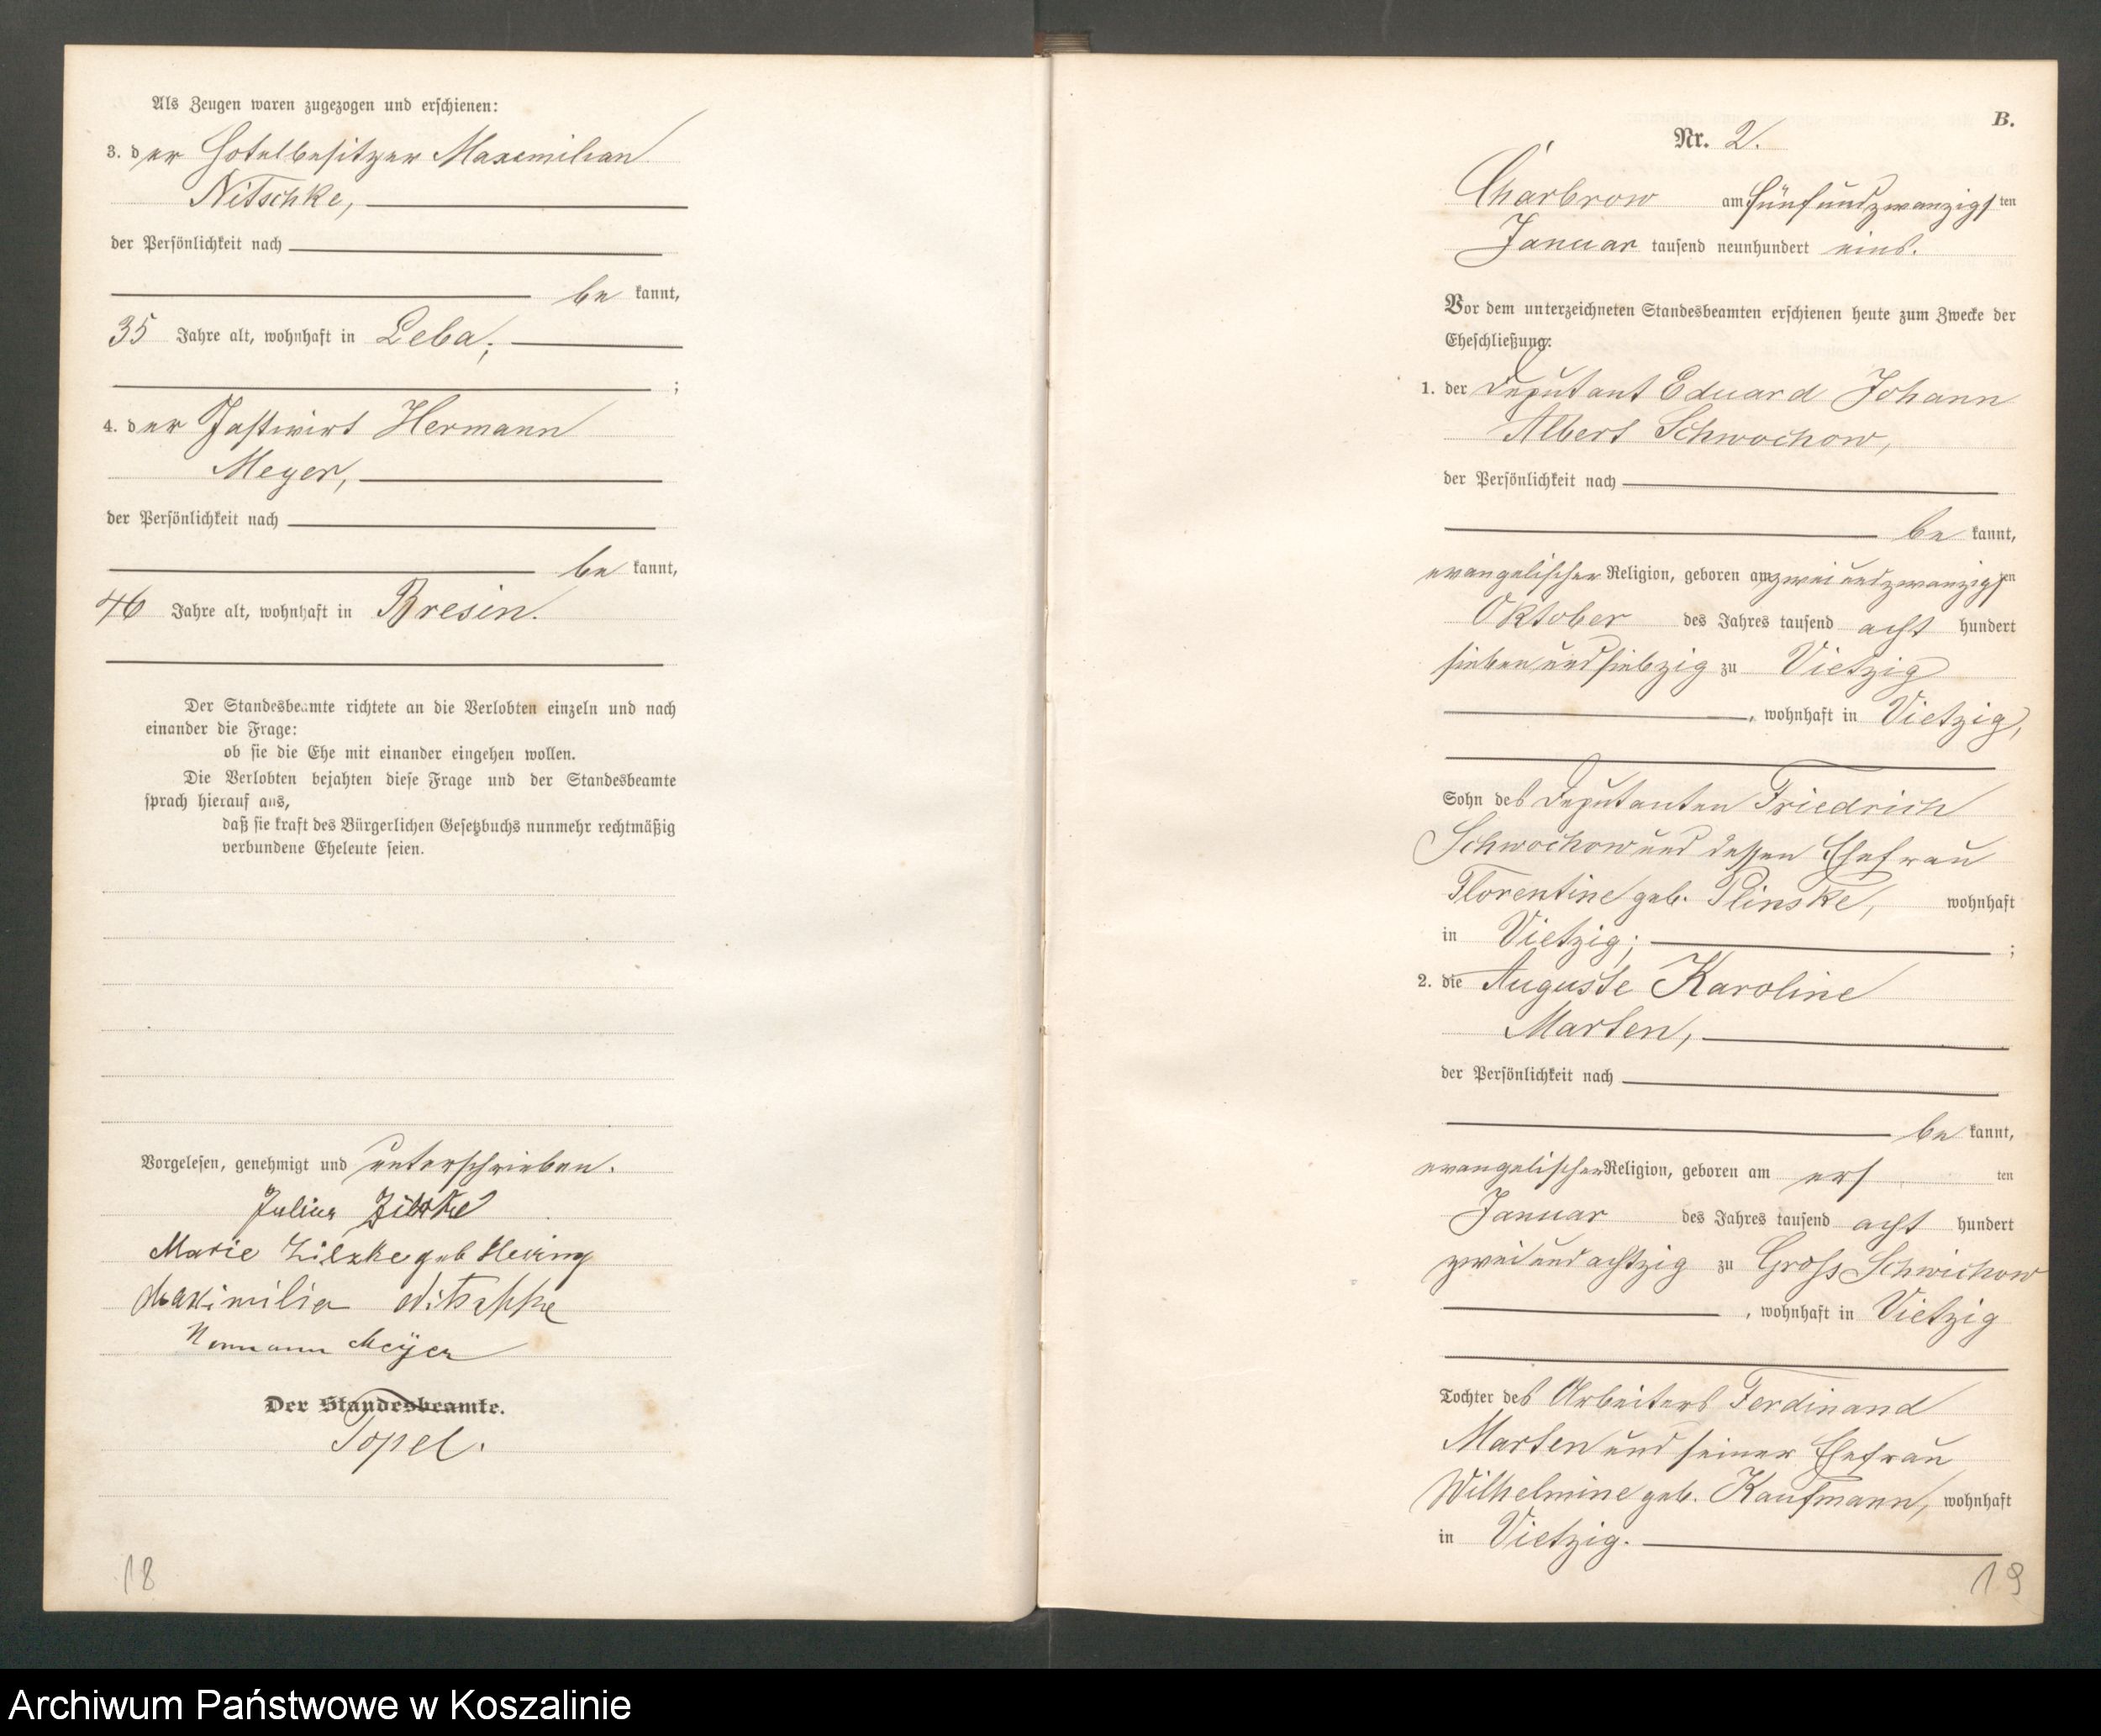 Als Zeugen waren zugezogen und erschienen:
3. der Hotelbesitzer Maximilian
Nitschke,
der Persönlichkeit nach
be kannt,
35 Jahre alt, wohnhaft in Leba;
;
4. der Gastwirt Hermann
Meyer,
der Persönlichkeit nach
be kannt,
46 Jahre alt, wohnhaft in Bresin.
Der Standesbeamte richtete an die Verlobten einzeln und nach
einander die Frage:
ob sie die Ehe mit einander eingehen wollen.
Die Verlobten bejahten diese Frage und der Standesbeamte
sprach hierauf aus,
daß sie kraft des Bürgerlichen Gesetzbuchs nunmehr rechtmäßig
verbundene Eheleute seien.
Vorgelesen, genehmigt und unterschrieben.
Julius
Marie geb
Nitschke
Hermann Meyer
Der Standesbeamte.
Topel.
18
B.
Nr. 2.
Charbrow am fünfundzwanzigsten
Januar tausend neunhundert eins.
Vor dem unterzeichneten Standesbeamten erschienen heute zum Zwecke der
Eheschließung:
1. der Deputant Eduard Johann
Albert Schwochow,
der Persönlichkeit nach
be kannt,
evangelischer Religion, geboren am zweiundzwanzigsten
Oktober des Jahres tausend acht hundert
siebenundsiebzig zu Vietzig
, wohnhaft in Vietzig,
Sohn des Deputanten Friedrich
Schwochow und dessen Ehefrau
Florentine geb. Plinske, wohnhaft
in Vietzig; ;
2. die Auguste Karoline
Marten,
der Persönlichkeit nach
be kannt,
evangelischer Religion, geboren am ersten
Januar des Jahres tausend acht hundert
zweiundachtzig zu Gross Schwichow
, wohnhaft in Vietzig
Tochter des Arbeiters Ferdinand
Marten und seiner Ehefrau
Wilhelmine geb. Kaufmann, wohnhaft
in Vietzig.
19
Archiwum Państwowe w Koszalinie